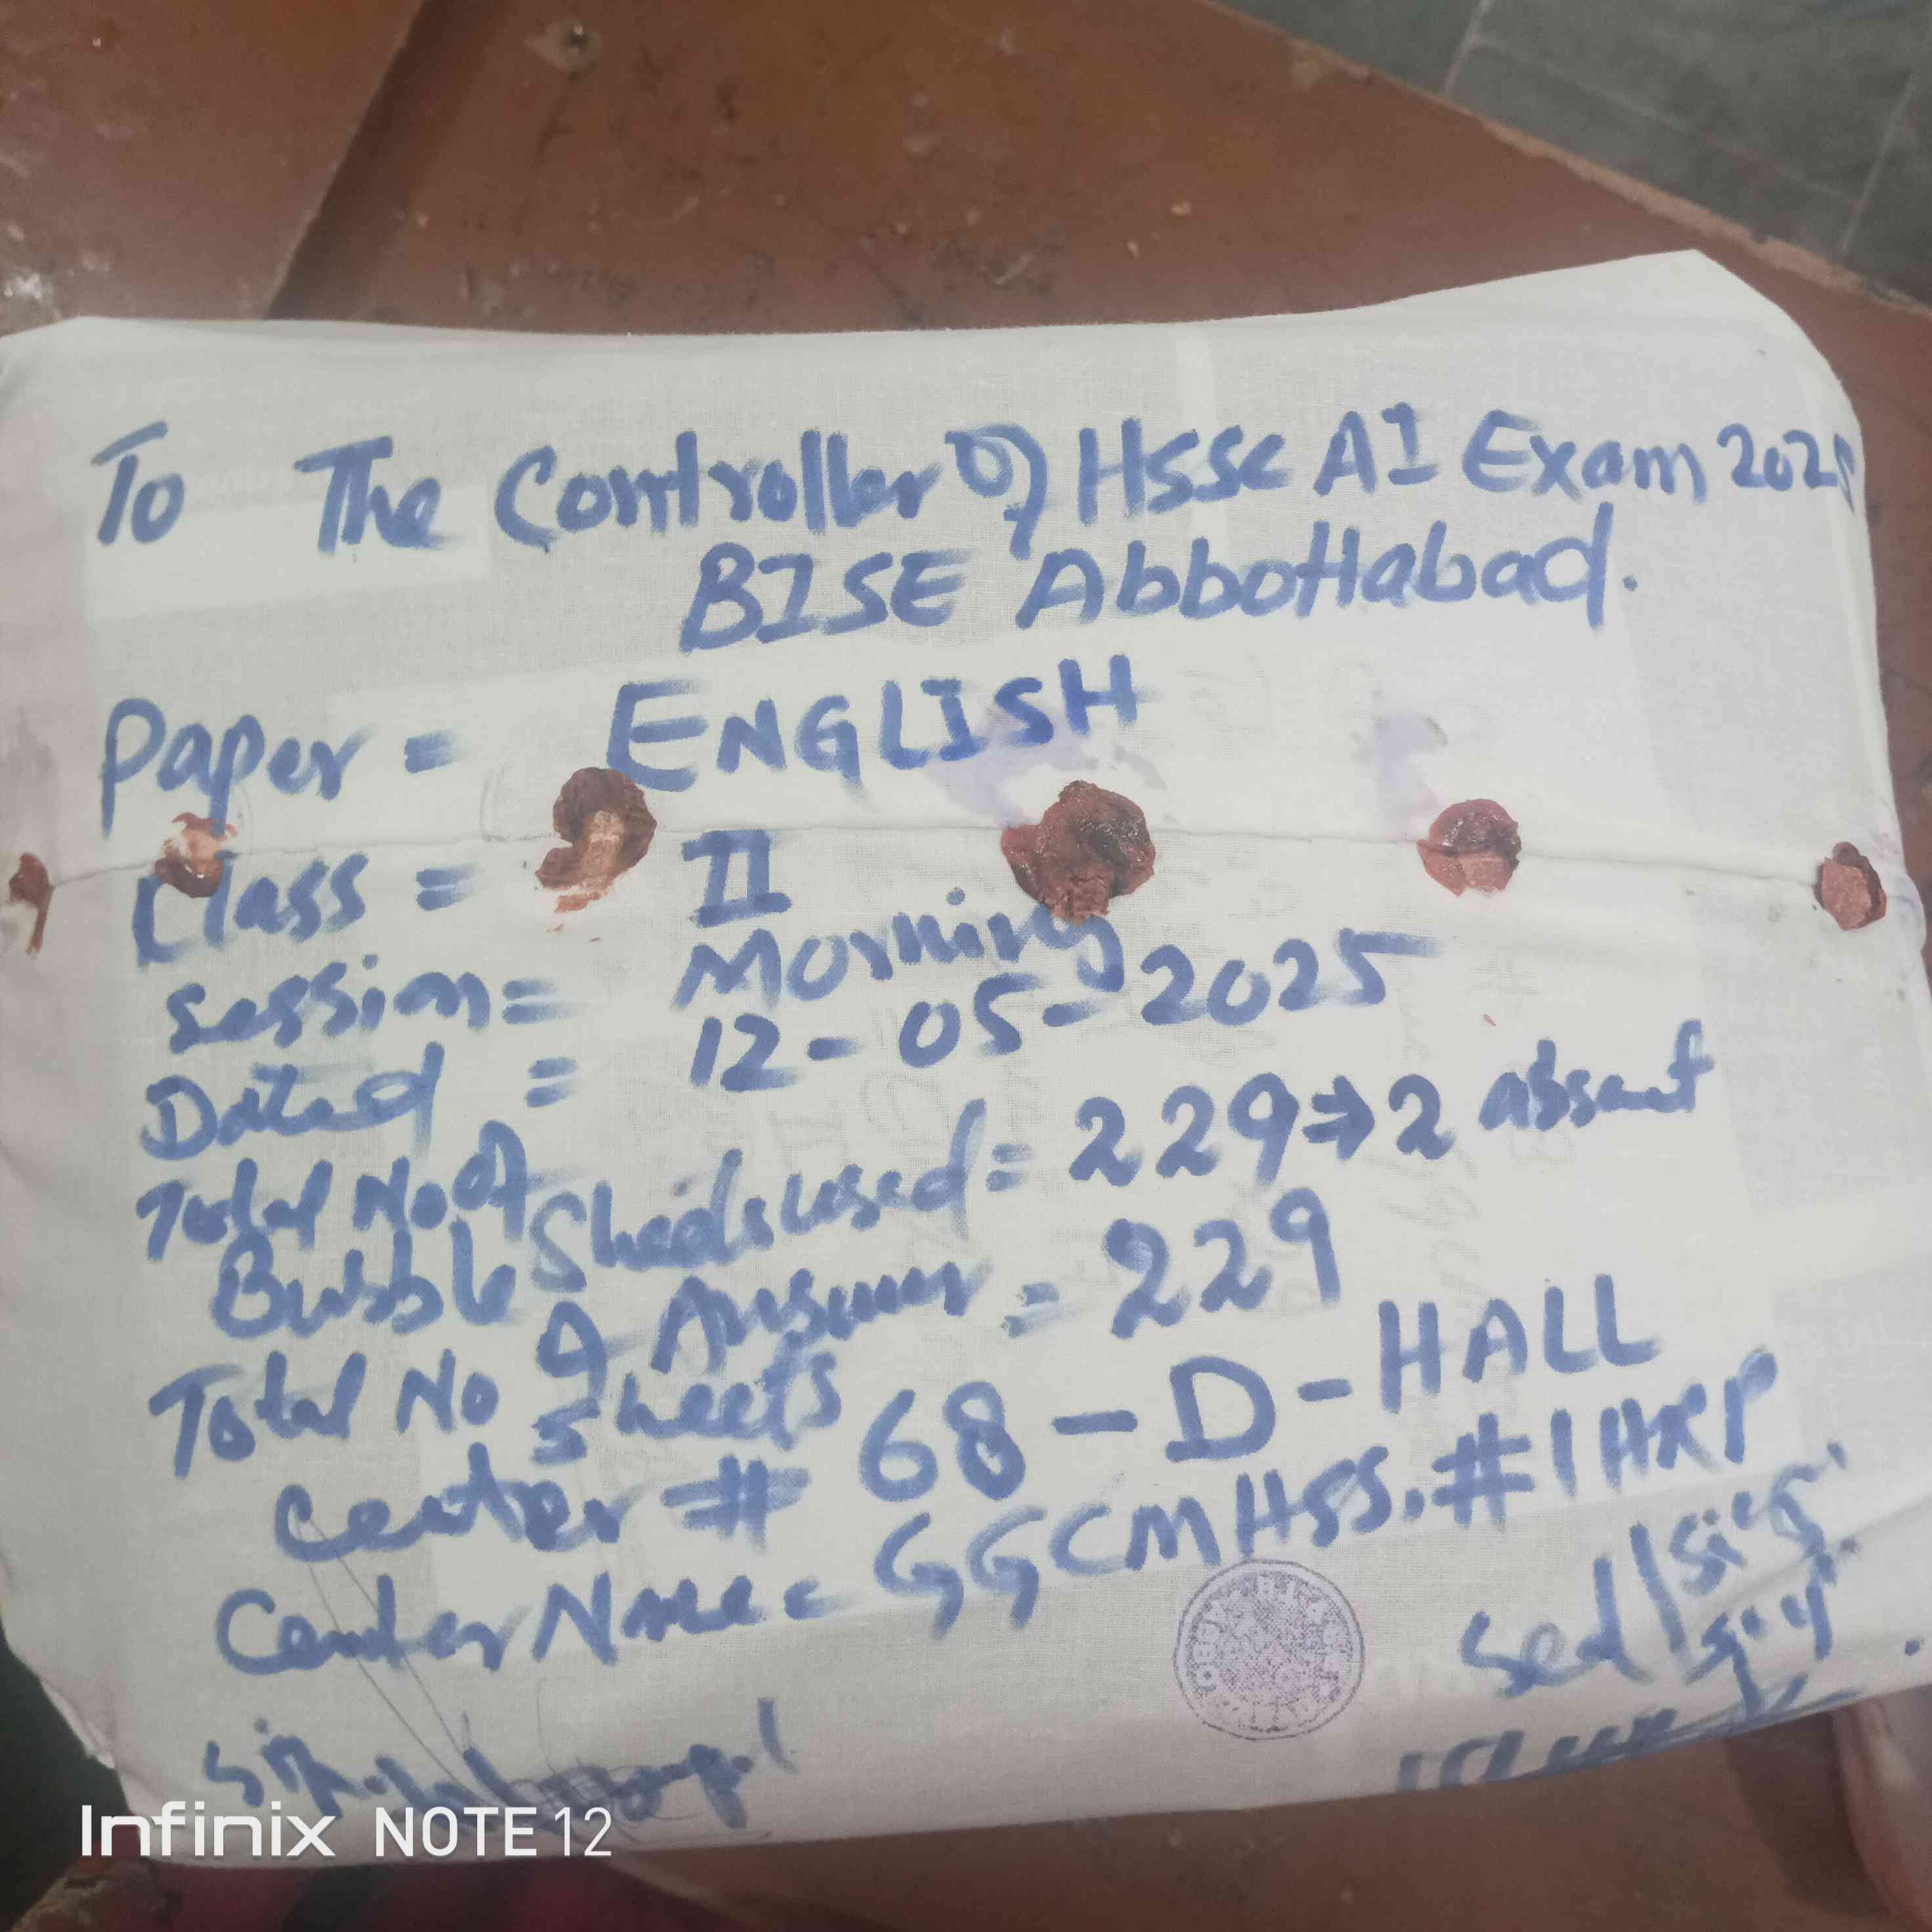 To The Controller of HSSC AI Exam 2025
BISE Abbottabad.
Paper = ENGLISH
Class = II
Session = Morning
Dated = 12-05-2025
Total No. of Bubble Sheets used = 229 ⇒ 2 absent
Total No of Answer Sheets = 229
Center # 68-D-HALL
Center Name = GGCMHSS. #1 HRP
Infinix NOTE 12